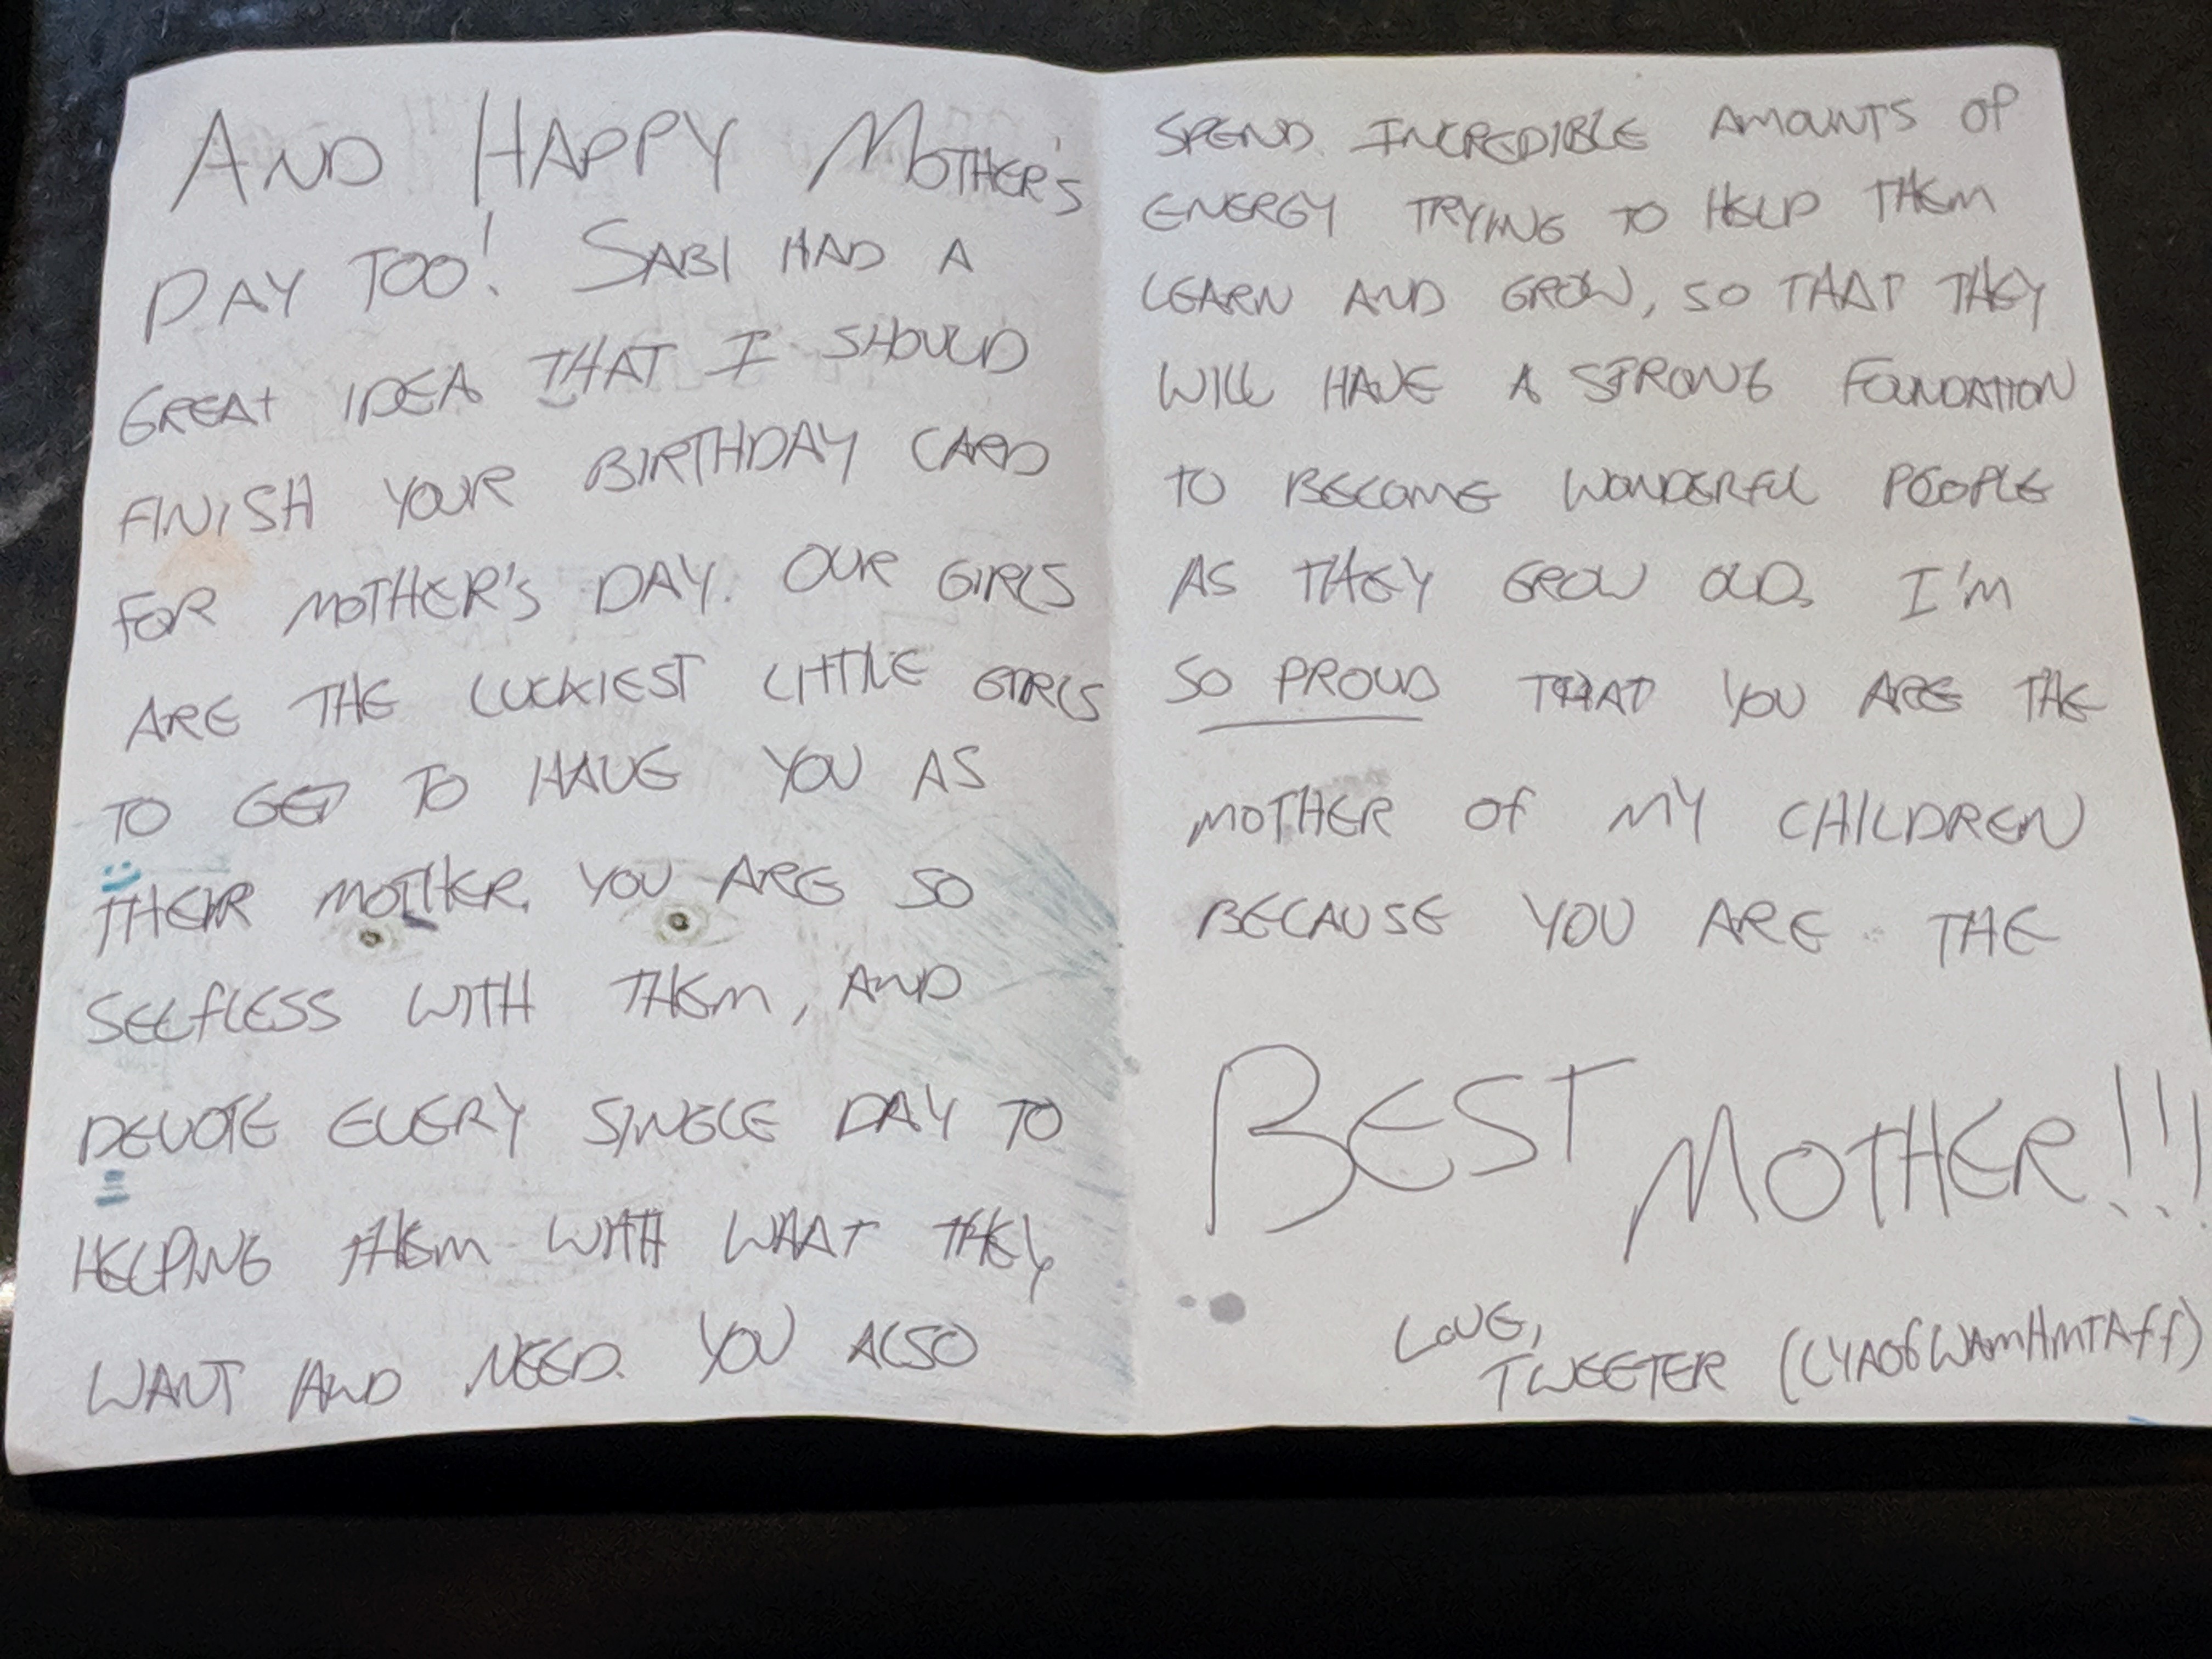 AND HAPPY MOTHER'S
DAY TOO! SABI HAD A
GREAT IDEA THAT I SHOULD
FINISH YOUR BIRTHDAY CARD
FOR MOTHER'S DAY. OUR GIRLS
ARE THE LUCKIEST LITTLE GIRLS
TO GET TO HAVE YOU AS
THEIR MOTHER. YOU ARE SO
SELFLESS WITH THEM, AND
DEVOTE EVERY SINGLE DAY TO
HELPING THEM WITH WHAT THEY
WANT AND NEED. YOU ALSO
SPEND INCREDIBLE AMOUNTS OF
ENERGY TRYING TO HELP THEM
LEARN AND GROW, SO THAT THEY
WILL HAVE A STRONG FOUNDATION
TO BECOME WONDERFUL PEOPLE
AS THEY GROW OLD. I'M
SO PROUD THAT YOU ARE THE
MOTHER OF MY CHILDREN
BECAUSE YOU ARE THE
BEST MOTHER!!!
LOVE,
TWEETER